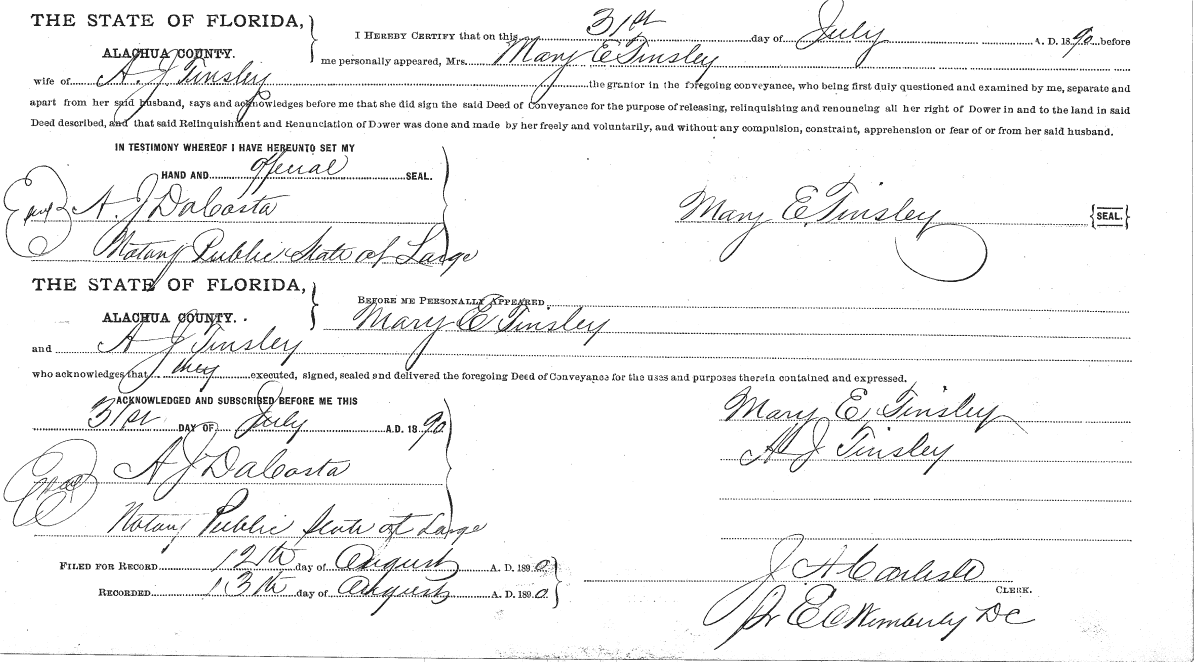 THE STATE OF FLORIDA,
ALACHUA COUNTY.
I HEREBY CERTIFY that on this 31st day of July A. D. 1890 before
me personally appeared, Mrs. Mary E Tinsley
wife of A. J Tinsley the grantor in the foregoing conveyance, who being first duly questioned and examined by me, separate and
apart from her said husband, says and acknowledges before me that she did sign the said Deed of Conveyance for the purpose of releasing, relinquishing and renouncing all her right of Dower in and to the land in said
Deed described, and that said Relinquishment and Renunciation of Dower was done and made by her freely and voluntarily, and without any compulsion, constraint, apprehension or fear of or from her said husband.
IN TESTIMONY WHEREOF I HAVE HEREUNTO SET MY
HAND AND official SEAL.
A. J DaCosta
Mary E Tinsley {SEAL.}
Notary Public State at Large
THE STATE OF FLORIDA,
ALACHUA COUNTY.
BEFORE ME PERSONALLY APPEARED
Mary E Tinsley
and A J Tinsley
who acknowledges that they executed, signed, sealed and delivered the foregoing Deed of Conveyance for the uses and purposes therein contained and expressed.
ACKNOWLEDGED AND SUBSCRIBED BEFORE ME THIS
31st DAY OF July A.D. 1890
Mary E, Tinsley
A J Tinsley
A J DaCosta
Notary Public State at Large
FILED FOR RECORD 12th day of August A. D. 1890
RECORDED 13th day of August A. D. 1890
J A Carlisle
CLERK.
pr E C Wimberly DC